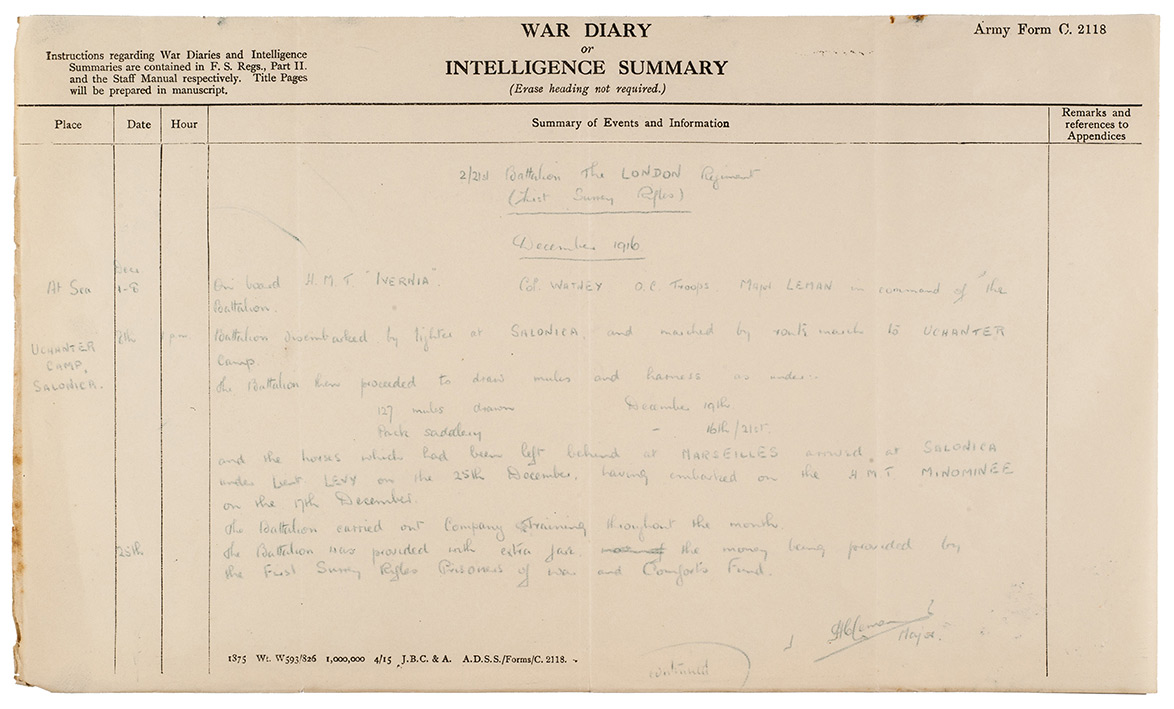 WAR DIARY
or
INTELLIGENCE SUMMARY
(Erase heading not required.)
Army Form C. 2118
Instructions regarding War Diaries and Intelligence
Summaries are contained in F. S. Regs., Part II.
and the Staff Manual respectively. Title Pages
will be prepared in manuscript.
Place Date Hour Summary of Events and Information Remarks and references to Appendices
2/21st Battalion The LONDON Regiment
(First Surrey Rifles)
December 1916
At Sea Dec 1-8 On board H.M.T. "IVERNIA". Col. WATNEY O.C. Troops. Major LEMAN in command of the
Battalion.
UCHANTER CAMP, SALONICA. 8th pm Battalion disembarked by lighter at SALONICA and marched by route march to UCHANTER
Camp.
The Battalion then proceeded to draw mules and harness as under:-
127 mules drawn December 19th.
Pack saddlery - 16th/21st.
and the horses which had been left behind at MARSEILLES arrived at SALONICA
under Lieut LEVY on the 25th December, having embarked on the H.M.T. MINOMINEE
on the 17th December.
The Battalion carried out Company Training throughout the month.
25th The Battalion was provided with extra fare. the money being provided by
the First Surrey Rifles Prisoners of war and Comforts Fund.
HCLeman
Major
continued
1875 Wt. W593/826 1,000,000 4/15 J.B.C. & A. A.D.S.S./Forms/C. 2118.